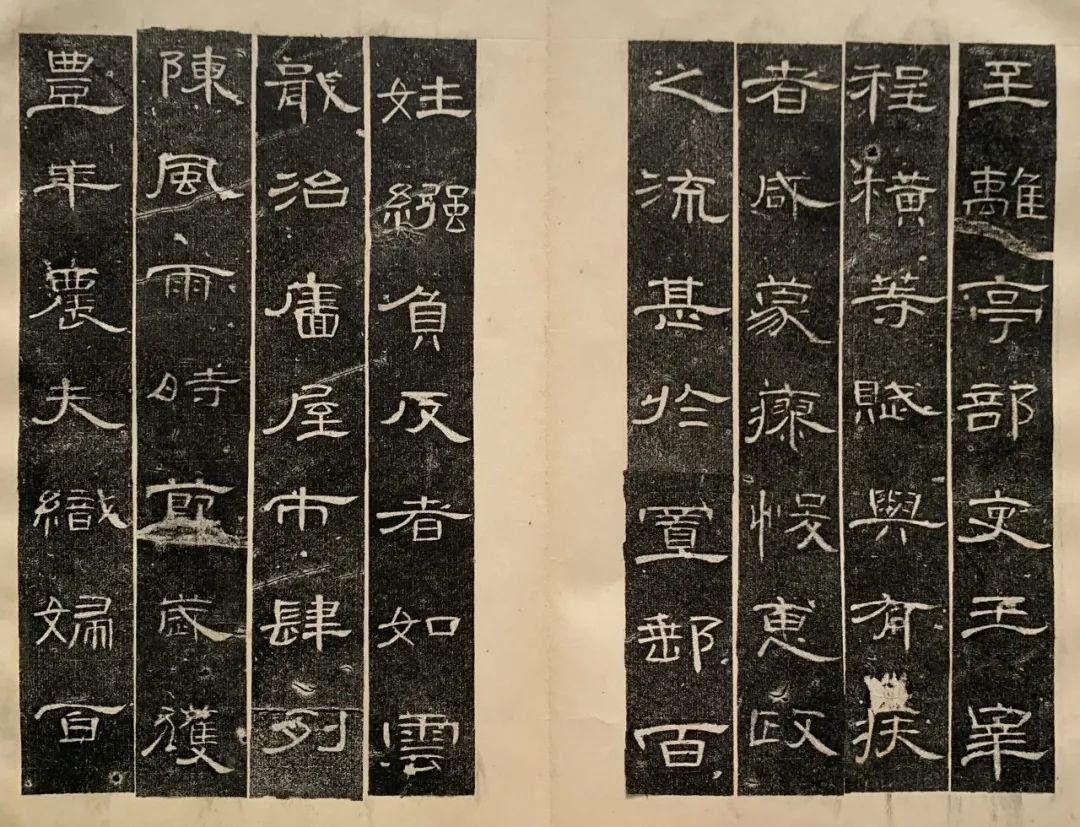 至離亭部吏王皐
程橫等賦與有疾
者咸蒙瘳悛惠政
之流甚於置郵百
姓繦負反者如雲
戢治廧屋市肆列
陳風雨時節歲獲
豊年農夫織婦百